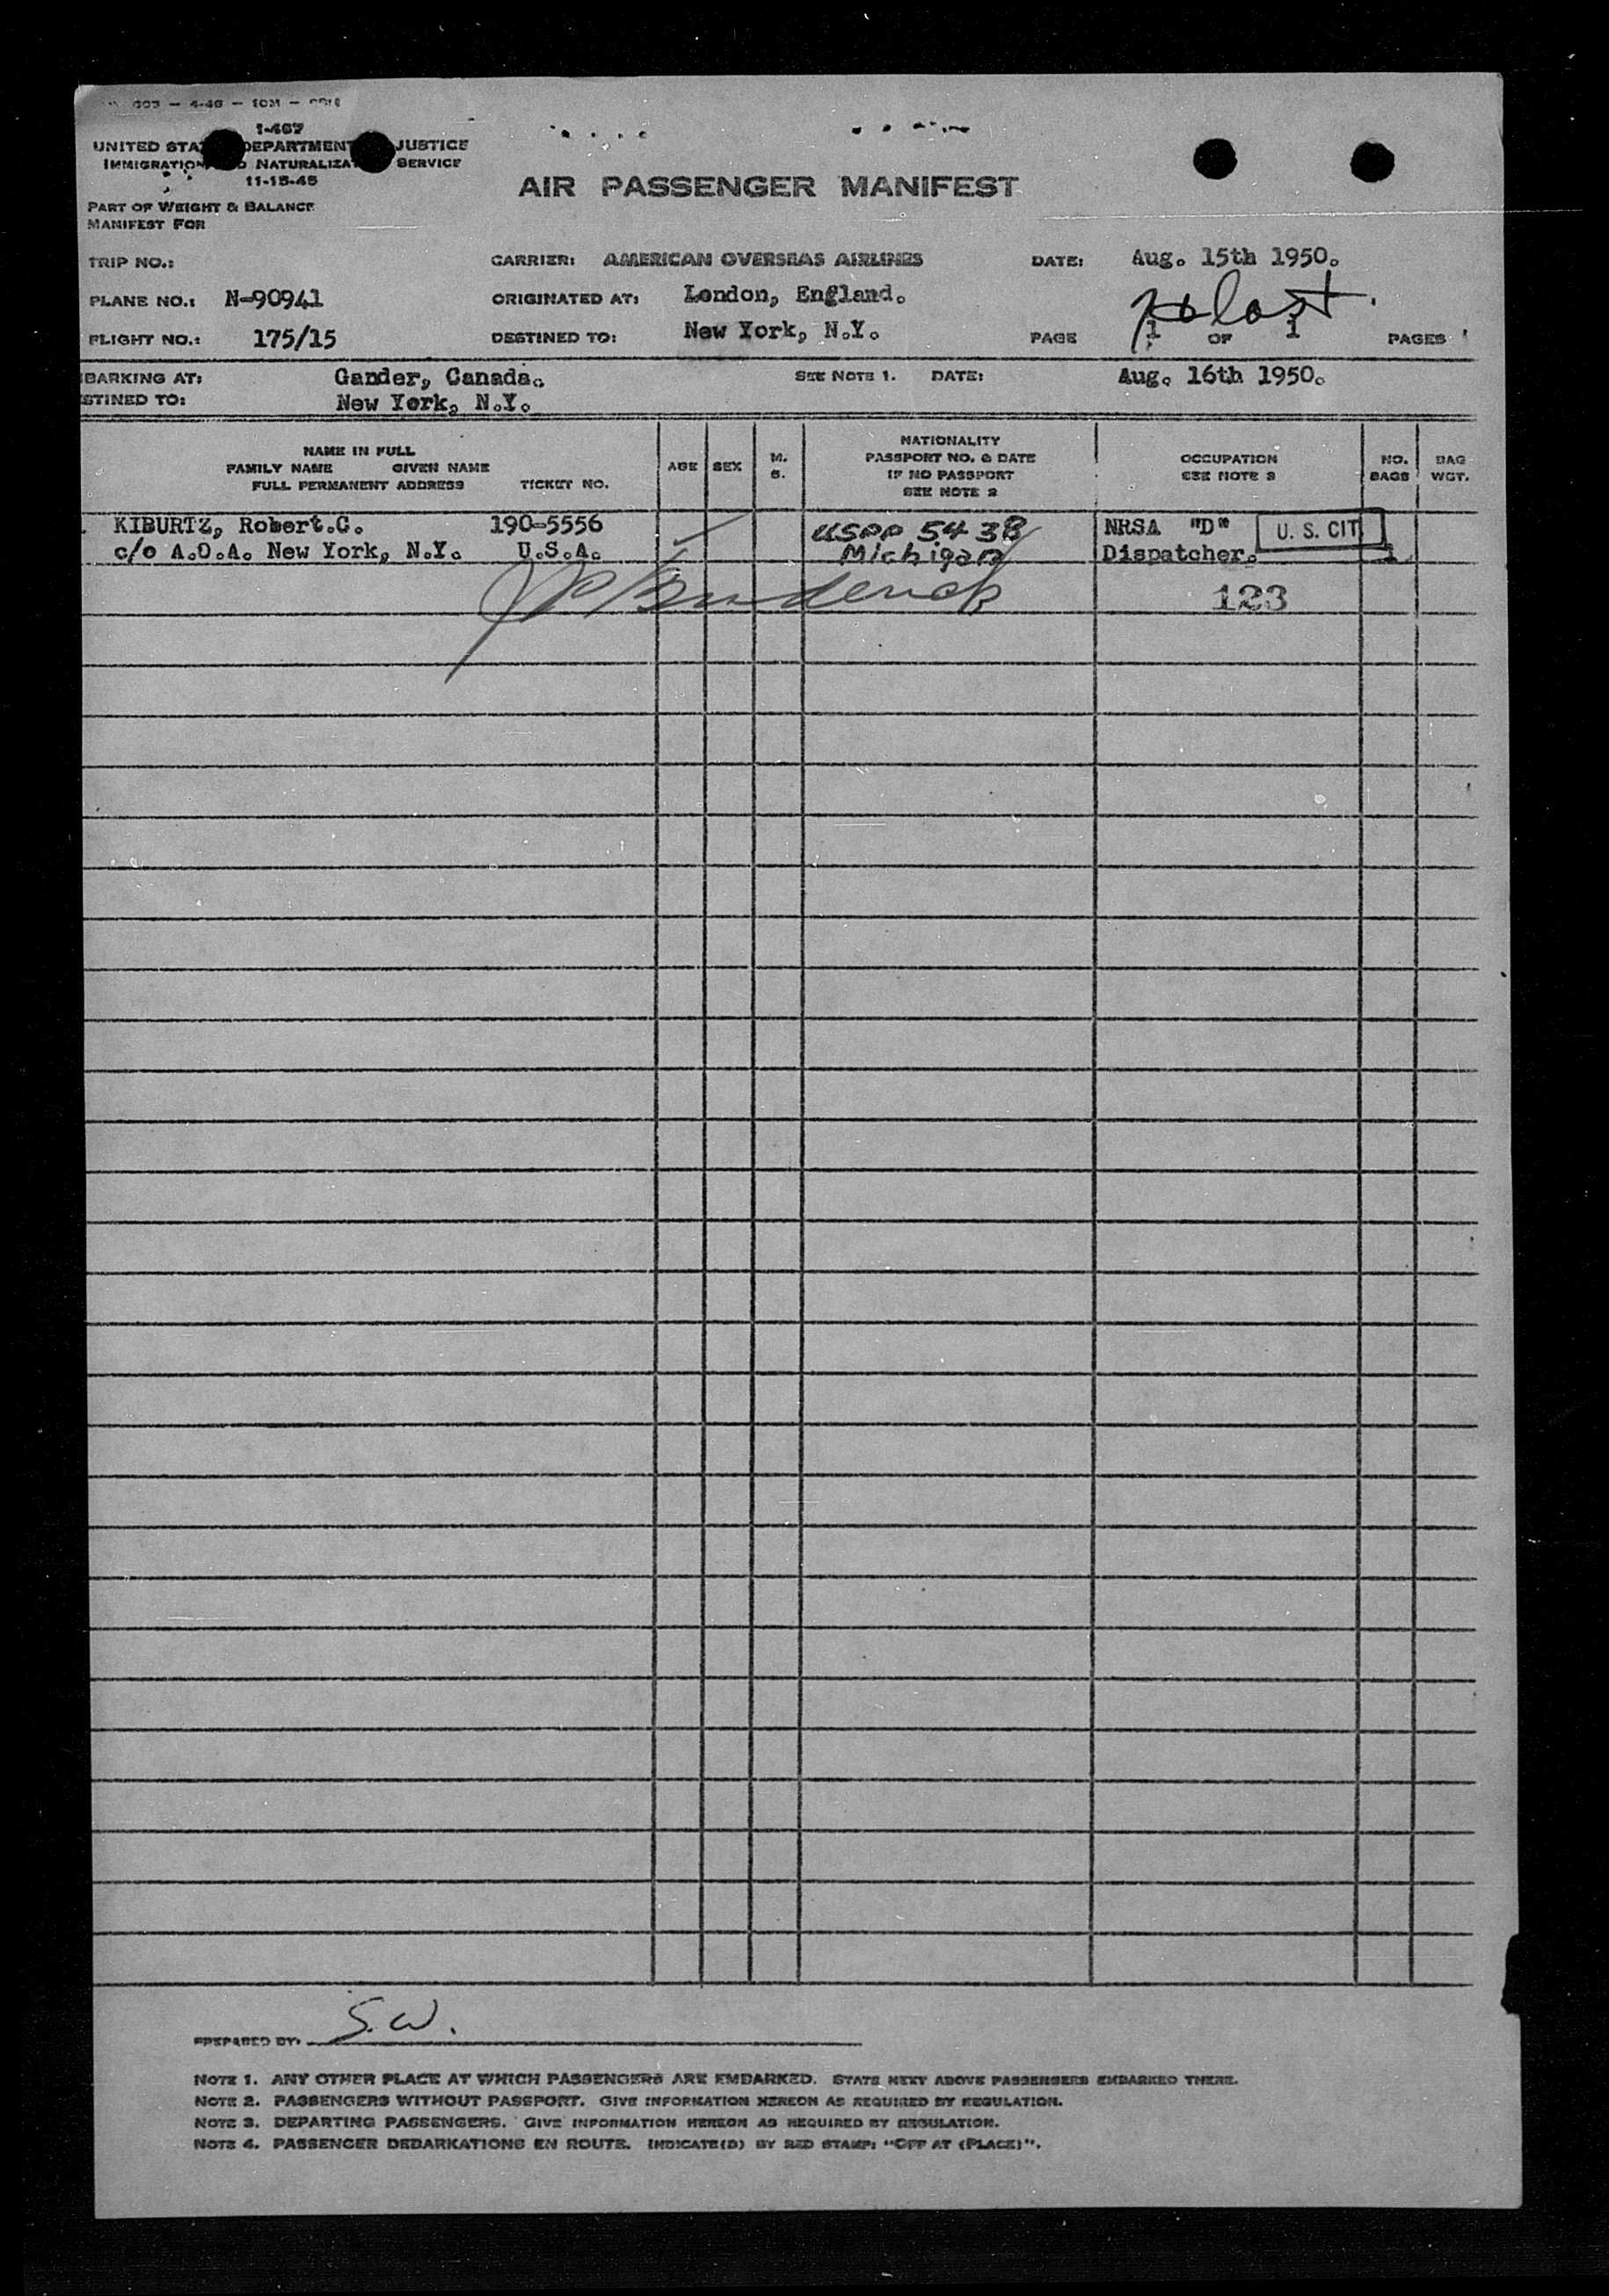 603 — 4-46 — 10M —
I-467
UNITED STA DEPARTMENT JUSTICE
IMMIGRATION NATURALIZAT SERVICE
11-15-45
AIR PASSENGER MANIFEST
PART OF WEIGHT & BALANCE
MANIFEST FOR
TRIP NO.: CARRIER: AMERICAN OVERSEAS AIRLINES DATE: Aug. 15th 1950.
PLANE NO.: N-90941 ORIGINATED AT: London, England.
FLIGHT NO.: 175/15 DESTINED TO: New York, N.Y. PAGE 1 OF 1 PAGES
BARKING AT: Gander, Canada. SEE NOTE 1. DATE: Aug. 16th 1950.
STINED TO: New York, N.Y.
NAME IN FULL
FAMILY NAME GIVEN NAME
FULL PERMANENT ADDRESS TICKET NO.
AGE
SEX
M.
S.
NATIONALITY
PASSPORT NO. & DATE
IF NO PASSPORT
SEE NOTE 2
OCCUPATION
SEE NOTE 3
NO.
BAGS
BAG
WGT.
KIBURTZ, Robert.C. 190-5556 USPP 5438 NRSA "D" U. S. CIT
c/o A.O.A. New York, N.Y. U.S.A. Michigan Dispatcher. 1
123
PREPARED BY: S.W.
NOTE 1. ANY OTHER PLACE AT WHICH PASSENGERS ARE EMBARKED. STATE NEXT ABOVE PASSENGERS EMBARKED THERE.
NOTE 2. PASSENGERS WITHOUT PASSPORT. GIVE INFORMATION HEREON AS REQUIRED BY REGULATION.
NOTE 3. DEPARTING PASSENGERS. GIVE INFORMATION HEREON AS REQUIRED BY REGULATION.
NOTE 4. PASSENGER DEBARKATIONS EN ROUTE. INDICATE(D) BY RED STAMP: "OFF AT (PLACE)".